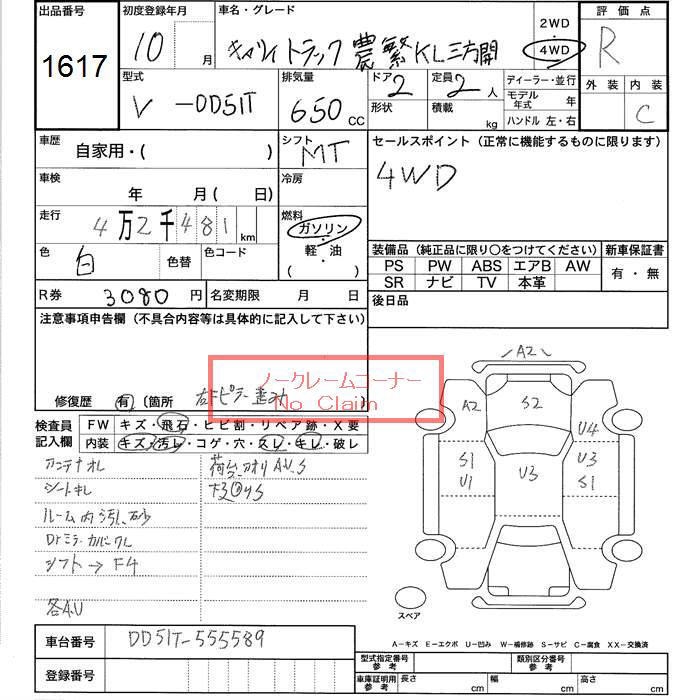 出品番号 初度登録年月 車名・グレード 2WD 評価点
1617 10 月 キャリイ トラック 農繁 KL三方開 4WD R
型式 排気量 ドア 定員 ディーラー・並行 外装 内装
V-DD51T 650 CC 2 2 人 モデル年式 年 C
形状 積載 kg ハンドル 左・右
車歴 自家用・( ) シフト MT セールスポイント (正常に機能するものに限ります)
車検 年 月 ( 日) 冷房 4WD
走行 4万2千481 km 燃料 ガソリン・軽油 ( )
色 白 色替 色コード 装備品 (純正品に限り〇をつけてください) 新車保証書
PS PW ABS エアB AW 有・無
SR ナビ TV 本革
R券 3080 円 名変期限 月 日 後日品
注意事項申告欄 (不具合内容等は具体的に記入して下さい)
ノークレームコーナー
No Claim
修復歴 有 (箇所 )
検査員記入欄 FW キズ・飛石・ヒビ割・リペア跡・X要
内装 キズ・汚レ・コゲ・穴・スレ・キレ・破レ
アンテナオレ 荷台アオリA.U.S
シートキレ
ルーム内汚レ、砂
Drミラーカバークレ
シフト→F4
各A.U
A2
A2 S2 U4
S1 U3 U3
U1 S1
スペア
車台番号 DD51T-555589
登録番号
A-キズ E-エクボ U-凹み W-補修跡 S-サビ C-腐食 XX-交換済
型式指定番号 参考 類別区分番号 参考
車庫証明用 参考 長さ cm 幅 cm 高さ cm